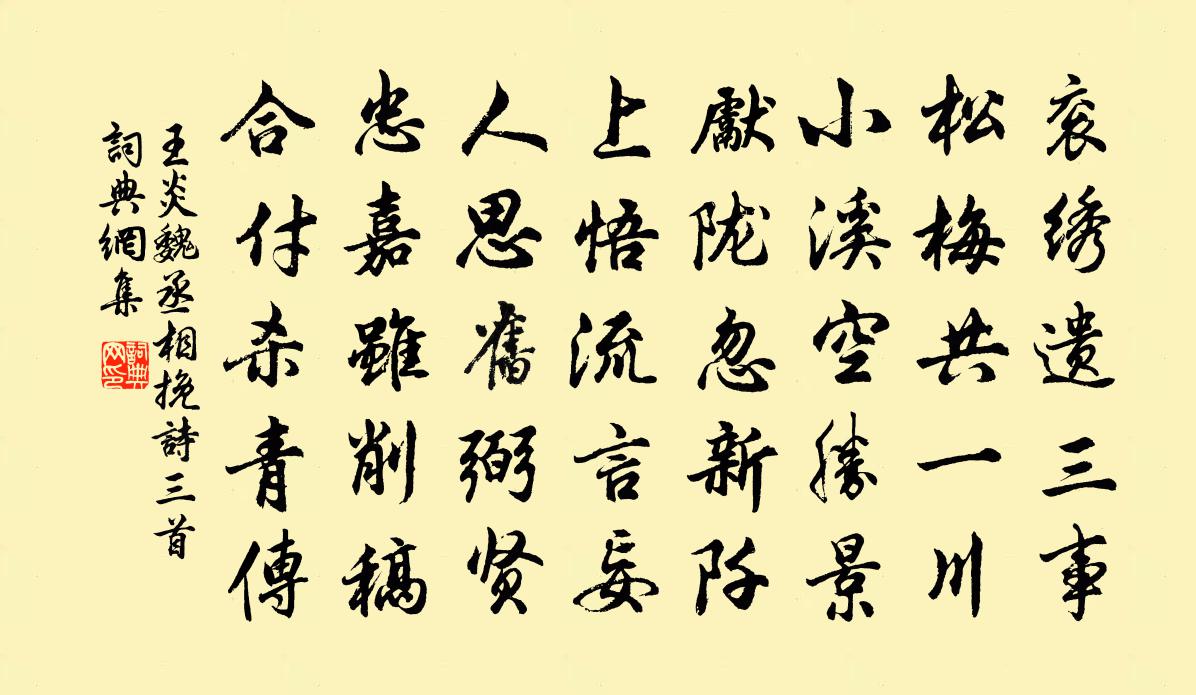 衮绣遗三事
松梅共一川
小溪空勝景
獻陇忽新阡
上悟流言妄
人思舊弼贤
忠嘉雖削稿
合付杀青傳
王炎魏丞相挽詩三首
詞典網集
詞典网印